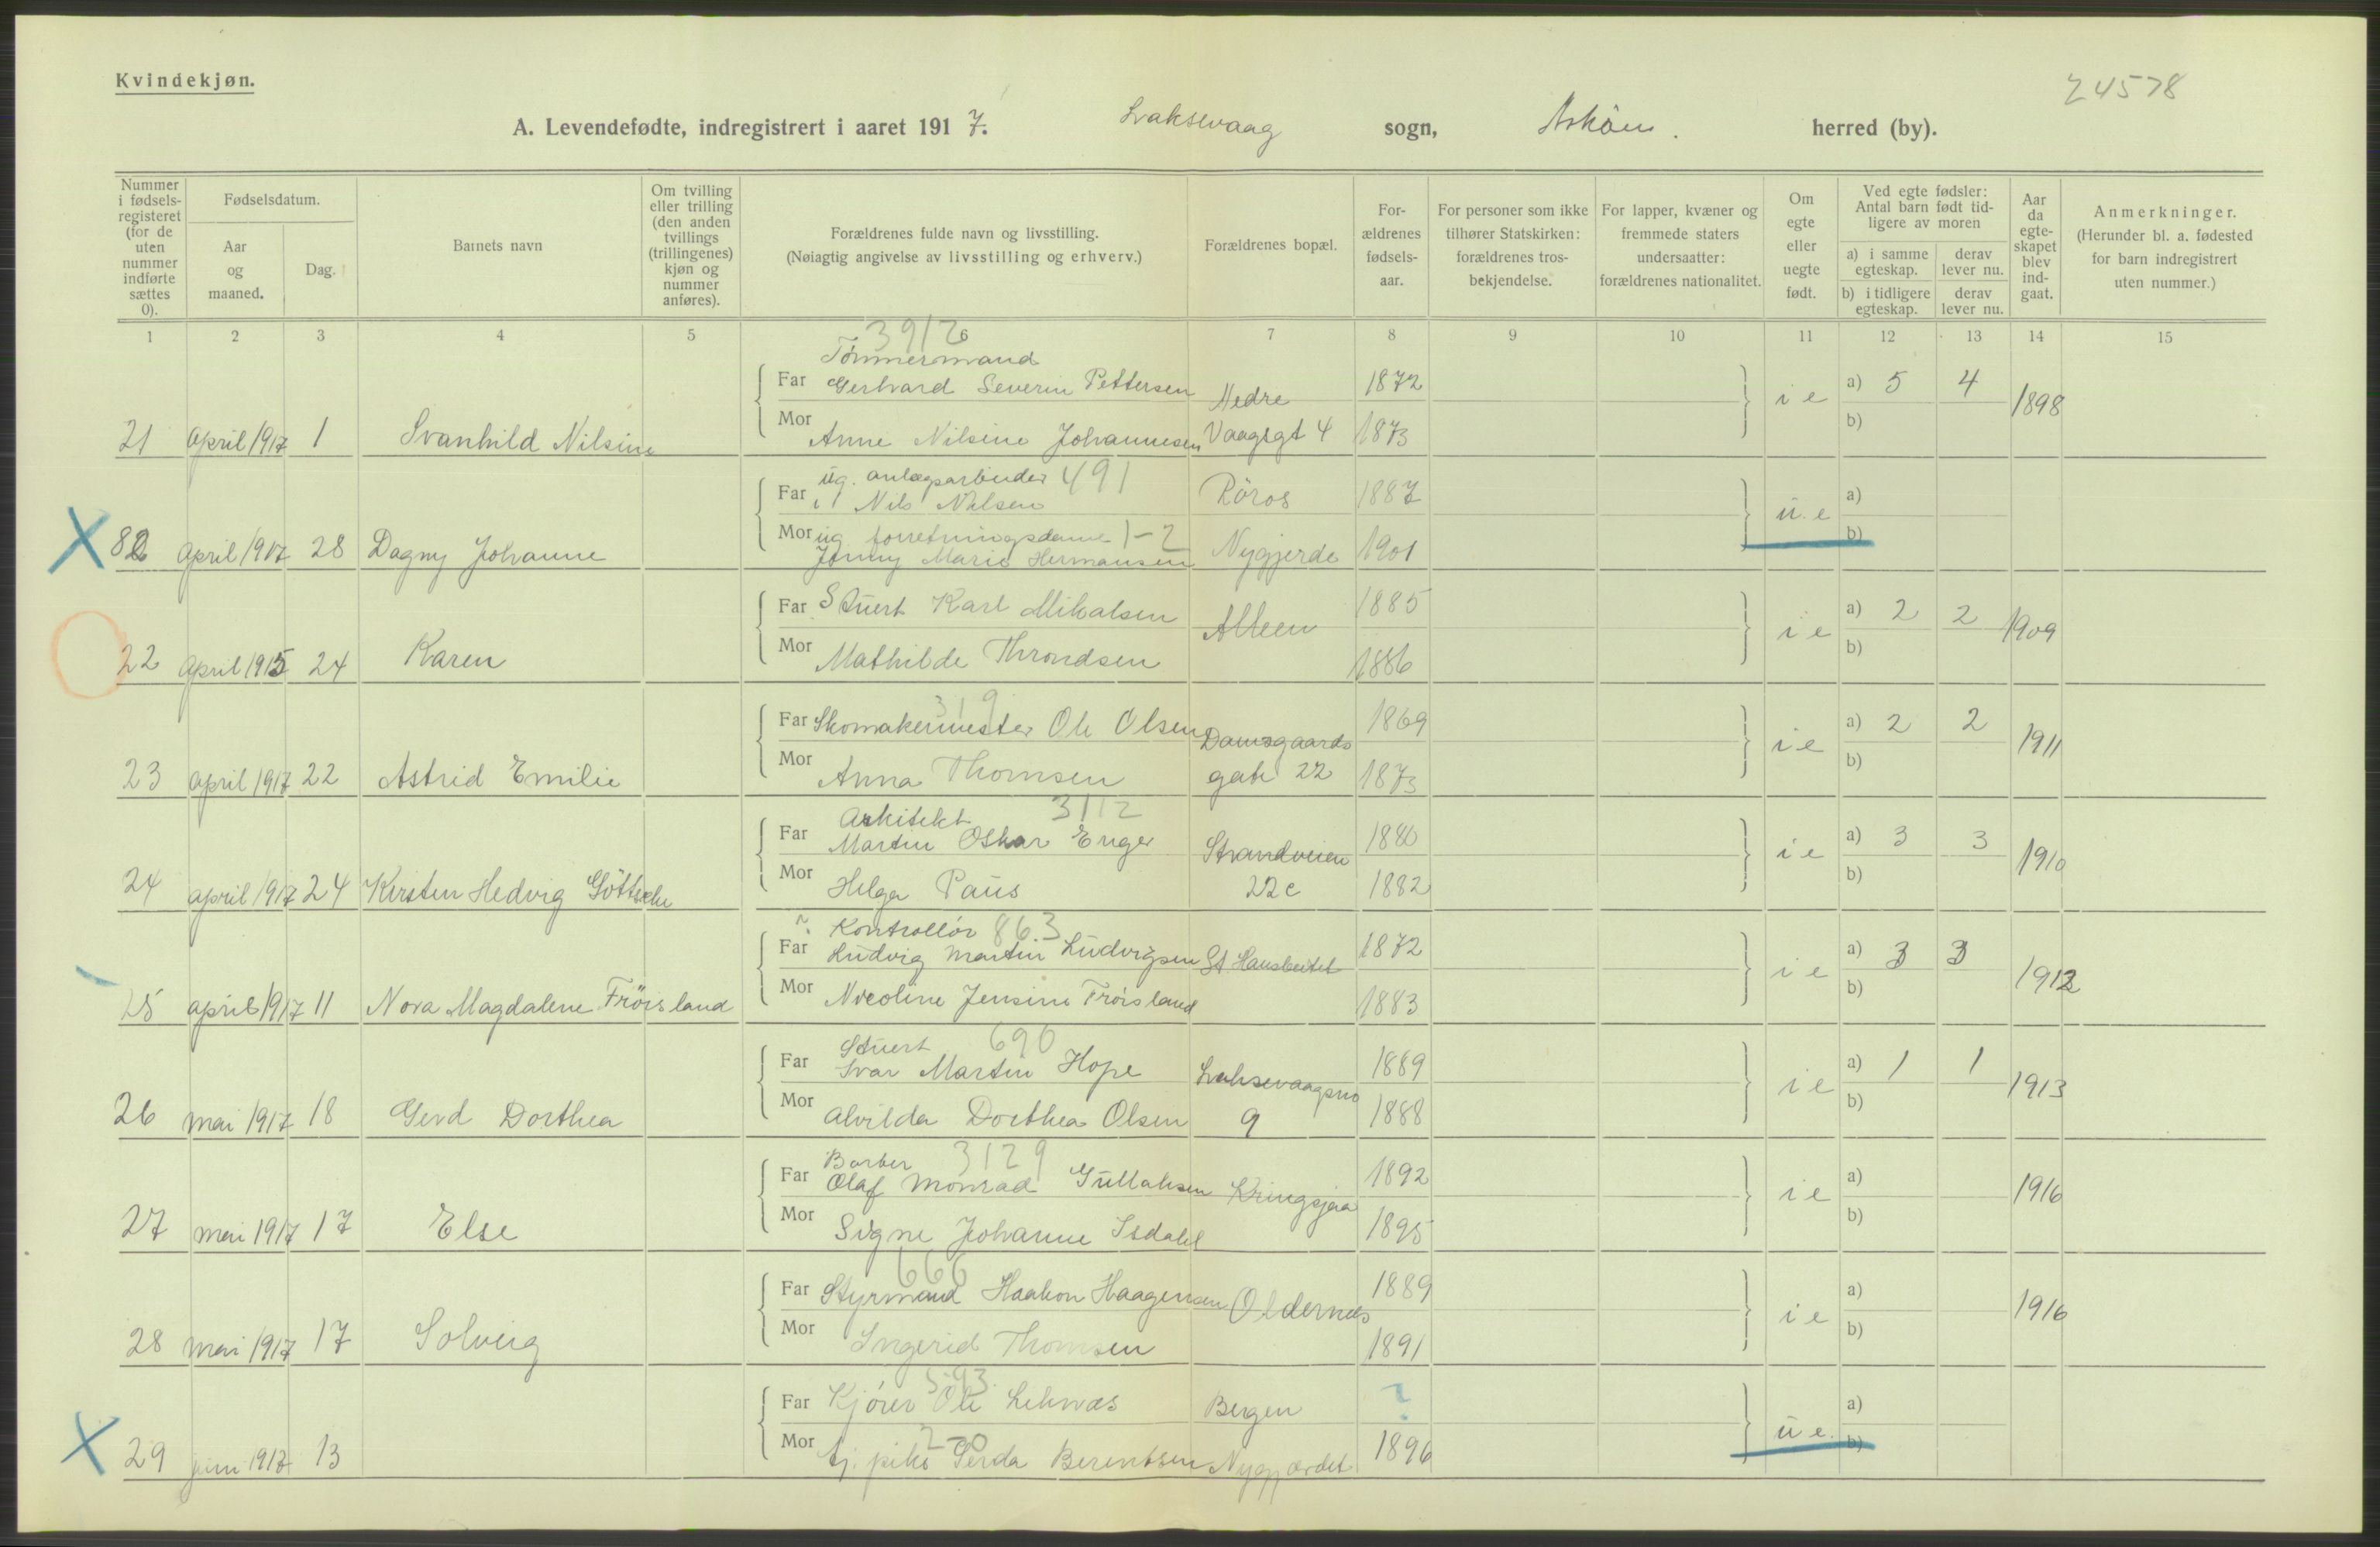 Kvindekjøn.
24578
A. Levendefødte, indregistrert i aaret 1917. Laksevaag sogn, Askøen. herred (by).
Nummer i fødselsregisteret (for de uten nummer indførte sættes 0).
Fødselsdatum.
Aar og maaned.
Dag.
Barnets navn
Om tvilling eller trilling (den anden tvillings (trillingenes) kjøn og nummer anføres).
Forældrenes fulde navn og livsstilling.
(Nøiagtig angivelse av livsstilling og erhverv.)
Forældrenes bopæl.
Forældrenes fødselsaar.
For personer som ikke tilhører Statskirken: forældrenes trosbekjendelse.
For lapper, kvæner og fremmede staters undersaatter: forældrenes nationalitet.
Om egte eller uegte født.
Ved egte fødsler: Antal barn født tidligere av moren
a) i samme egteskap. derav lever nu.
b) i tidligere egteskap. derav lever nu.
Aar da egteskapet blev indgaat.
Anmerkninger.
(Herunder bl. a. fødested for barn indregistrert uten nummer.)
1 2 3 4 5 6 7 8 9 10 11 12 13 14 15
3912
Tømmermand
Far Gerhard Severin Pettersen Nedre 1872 i e a) 5 4 1898
21 april 1917 1 Svanhild Nilsine Mor Anne Nilsine Johannesen Vaagsgt 4 1873 b)
ug. anlægsarbeider 491
Far Nils Nilsen Røros 1887 u. e a)
X 82 april 1917 28 Dagny Johanne Mor ug. forretningsdame 1-2
Jenny Marie Hermansen Nygjerde 1901 b)
Far Stuert Karl Mikalsen Alleen 1885 i e a) 2 2 1909
22 april 1915 24 Karen Mor Mathilde Throndsen 1886 b)
319
Far Skomakermester Ole Olsen Damsgaards 1869 i e a) 2 2 1911
23 april 1917 22 Astrid Emilie Mor Anna Thomsen gate 22 1873 b)
Arkitekt 3112
Far Martin Oskar Enger Strandveien 1880 i e a) 3 3 1910
24 april 1917 24 Kirsten Hedvig Mor Helga Paus 22c 1882 b)
? Kontrollør 863
Far Ludvig Martin Ludvigsen St Hans 1872 i e a) 3 3 1912
25 april 1917 11 Nora Magdalene Frøisland Mor Nicoline Jensine Frøisland 1883 b)
Stuert 690
Far Ivar Martin Hope Laksevaagsno 1889 i e a) 1 1 1913
26 mai 1917 18 Gerd Dorthea Mor Alvilda Dorthea Olsen 9 1888 b)
Barber 3129
Far Olaf Monrad Gullaksen Kringsjaa 1892 i e a) 1916
27 mai 1917 17 Else Mor Signe Johanne Isdahl 1895 b)
666
Far Styrmand Haakon Haagensen Oldernes 1889 i e a) 1916
28 mai 1917 17 Solveig Mor Ingerid Thomsen 1891 b)
593.
Far Kjører Ole Leknæs Bergen ? u e. a)
2-0
X 29 juni 1917 13 Mor tj. pike Gerda Berentsen Nygjærdet 1896 b)